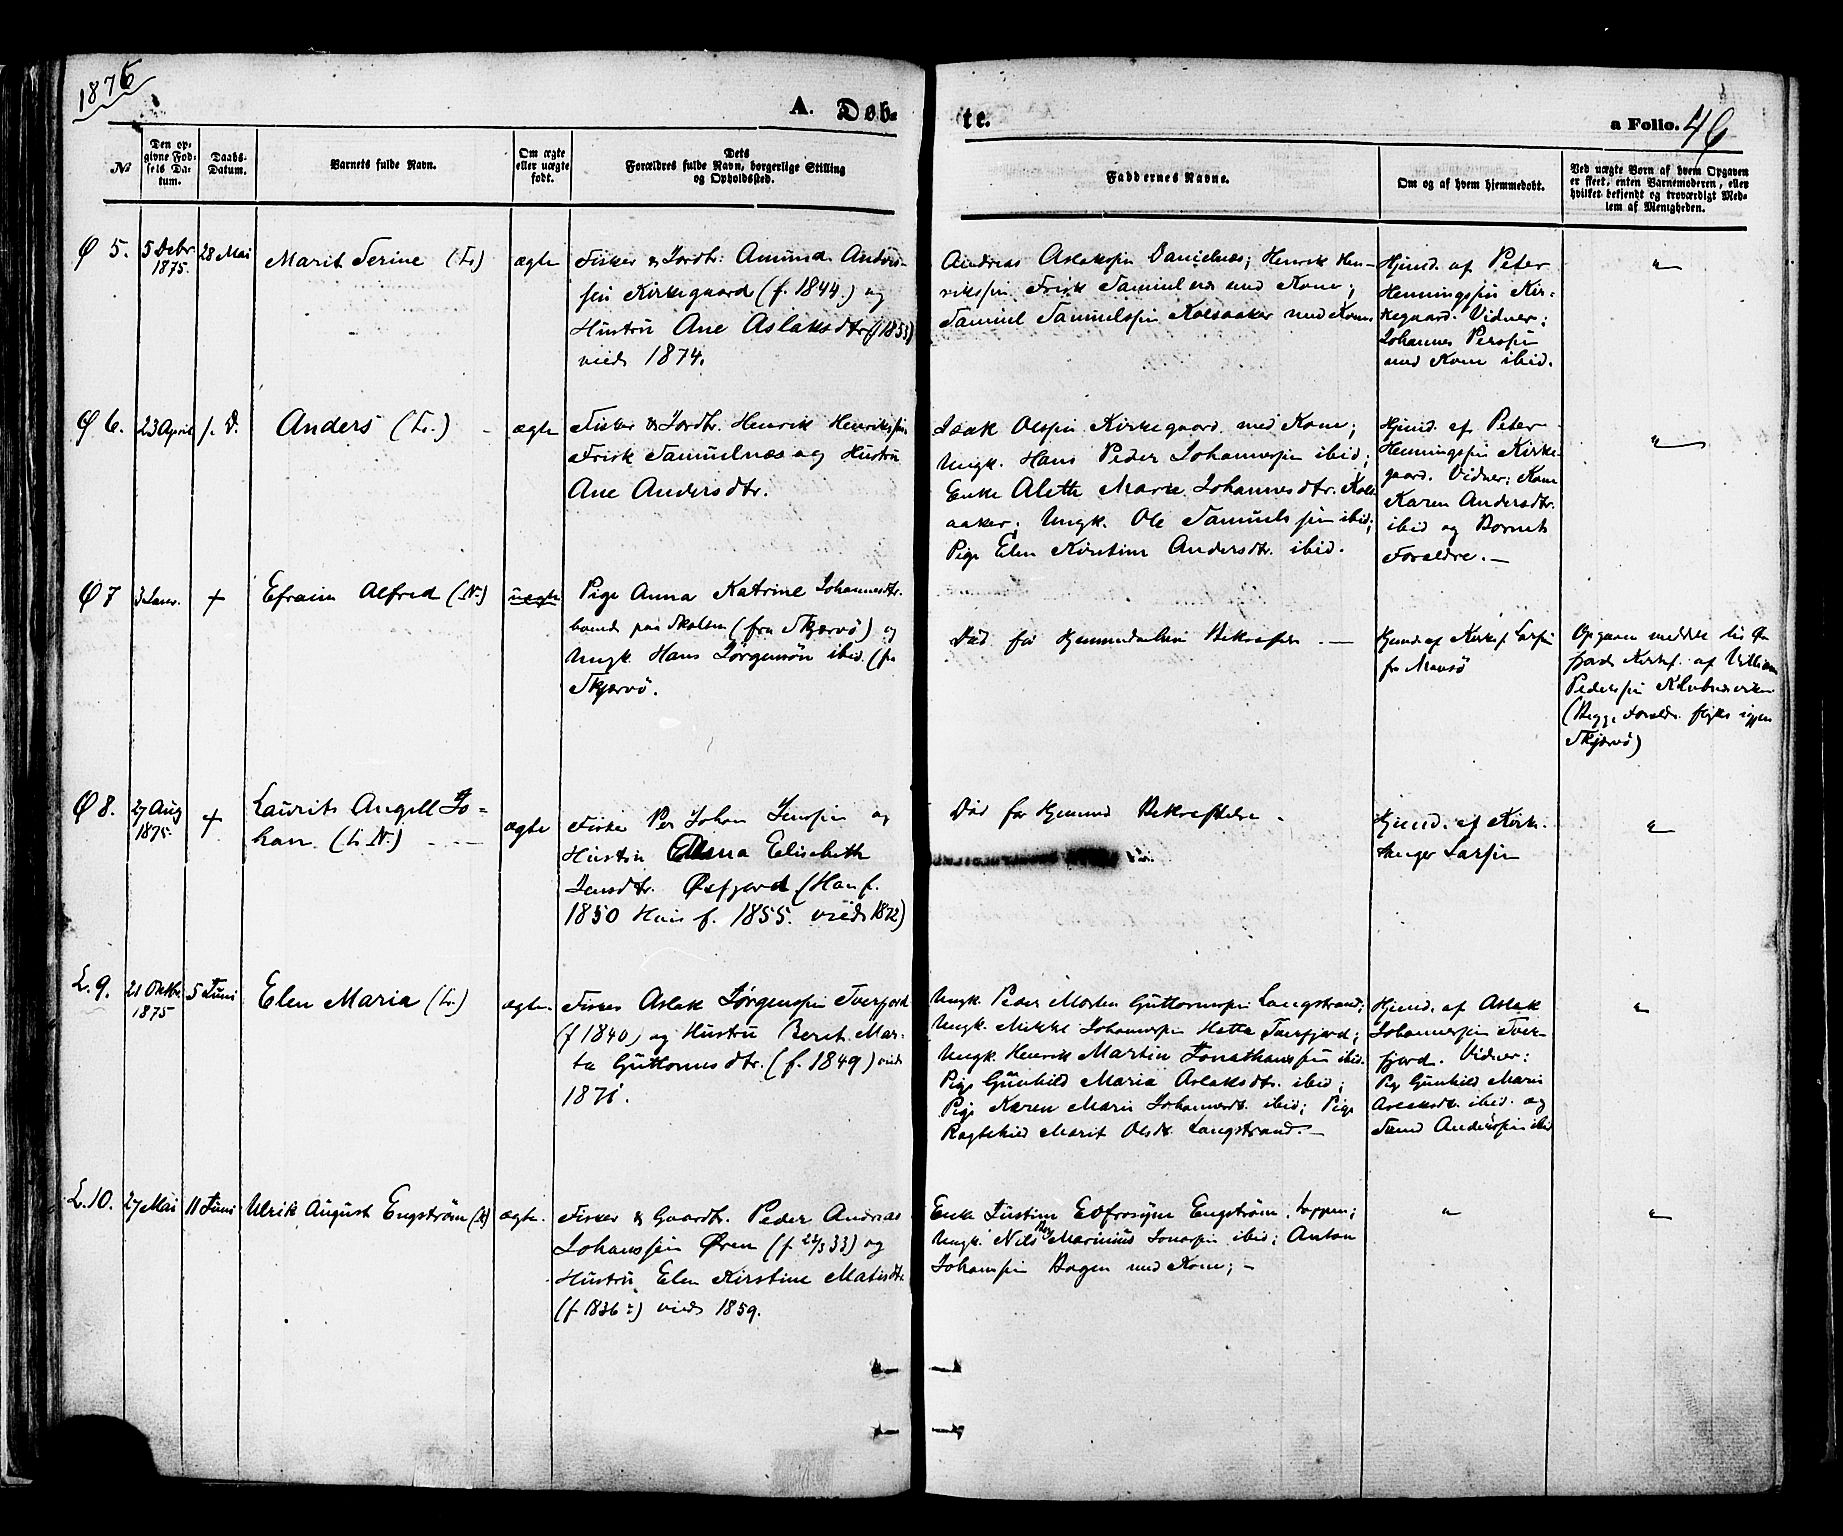 1876
A. Døb-
te.
a Folio. 46
№
Den op-
givne Fød-
sels Da-
tum.
Daabs-
Datum.
Barnets fulde Navn.
Om ægte
eller uægte
født.
Dets
Forældres fulde Navn, borgerlige Stilling
og Opholdssted.
Faddernes Navne.
Om og af hvem hjemmedøbt.
Ved uægte Børn af hvem Opgaven
er skeet, enten Barnemoderen, eller
hvilket bekjendt og troværdigt Med-
lem af Menigheden.
Ø 5.
5 Debr
1875.
28 Mai
Marit Serine (Lr)
ægte
Fisker & Jordbr. Amund Anders-
sen Kirkegaard (f. 1844) og
Hustru Ane Aslaksdtr (f 1853)
viede 1874.
Andreas Aslaksen Danielnæs; Henrik Hen-
riksen Frisk Samuelnæs med Kone;
Samuel Samuelssen Kolsaaker med Kone.
Hjmd. af Peter
Henningssen Kir-
kegaard. Vidner:
Johannes Perssen
med Kone ibid.
"
Ø 6.
23 April
s. D.
Anders (Lr.)
ægte
Fisker & Jordbr. Henrik Henrikssen
Frisk Samuelnæs og Hustru
Ane Andersdtr.
Isak Olssen Kirkegaard med Kone;
Ungk. Hans Peder Johannessen ibid;
Enke Aleth Marie Johannesdtr. Kols-
aaker; Ungk. Ole Samuelssen ibid;
Pige Elen Kirstine Andersdtr. ibid.
Hjmd. af Peter
Henningssen Kirke-
gaard. Vidner: Kone
Karen Andersdtr.
ibid og Barnets
Forældre. —
"
Ø 7
3 Janr.
+
Efraim Alfred (N.)
uægte
Pige Anna Katrine Johannesdtr.
boende paa Skolten (fra Skjervö) og
Ungk. Hans Jørgensön ibid. (fr
Skjervö.
Død før Hjemmedaabens Bekræftelse —
Hjmd. af Kirkes. Larsen
fr Maasö
Pedersen
(Begge Foreldr. flytte igjen
Skjervö)
Ø 8.
27 Aug
1875.
+
Laurits Angell Jo-
han (Lr N.)
ægte
Fisker Per Johan Jenssen og
Hustru Elena Elisabeth
Jensdtr. Øxfjord (Han f.
1850 Hun f. 1855. viede 1872)
Død før Hjemmed Bekræftelse.
Hjmd. af Kirke-
sanger Larsen
"
L. 9.
21 Oktbr.
1875
5 Juni
Elen Maria (Lr)
ægte.
Fisker Aslak Jørgenssen Tverfjord
(f 1840) og Hustru Berit Mar-
ta Guttormsdtr. (f. 1849) viede
1871.
Ungk. Peder Morten Guttormssen Langstrand;
Ungk. Mikkel Johannessen Hætta Tverfjord;
Ungk Henrik Martin Jonathanssen ibid.
Pige Gunhild Maria Aslaksdtr. ibid;
Pige Karen Marie Johannesdt. ibid; Pige
Ragnhild Marit Olsdt. Langstrand. —
Hjmd. af Aslak
Johannessen Tver-
fjord. Vidner:
Pig Gunhild Maria
Aslaksdt. ibid. og
Anderssen ibid
"
L. 10.
27 Mai
11 Juni
Ulrik August Engström (N)
ægte.
Fisker & Gaardbr. Peder Andreas
Johanssen Øren (f 22/3 33) og
Hustru Elen Kirstine Matisdtr.
(f 1836?) viede 1859.
Enke Justine Eufrosyne Engström Loppen;
Ungk. Nils Marinius ibid; Anton
Johanssen Bogen med Kone; —
"
"